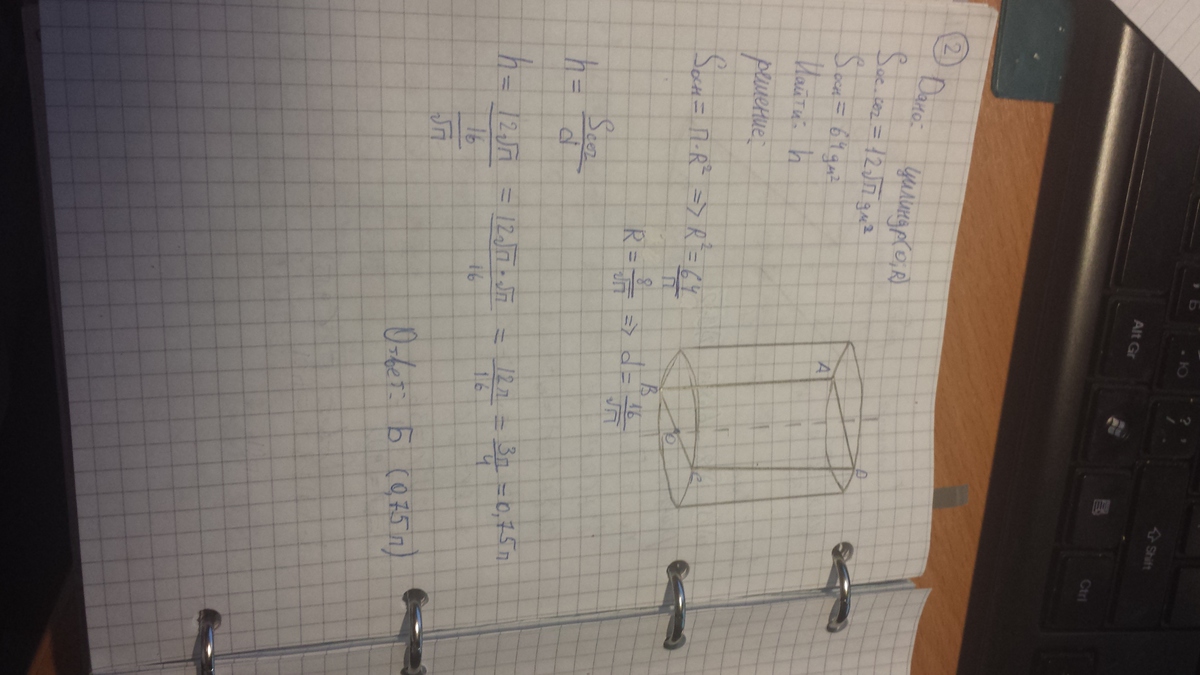 ② Дано: цилиндр (O; R)
Sос.сог = 12√п дм²
Sосн = 64 дм²
Найти: h
решение:
Sосн = п·R² => R² = 64/п
R = 8/√п => d = 16/√п
h = Sсог/d
h = 12√п/(16/√п) = 12√п·√п/16 = 12п/16 = 3п/4 = 0,75п
Ответ: Б (0,75п)
A
D
B
O
C
Alt Gr
Ю
Б
?
/
⇧Shift
Ctrl